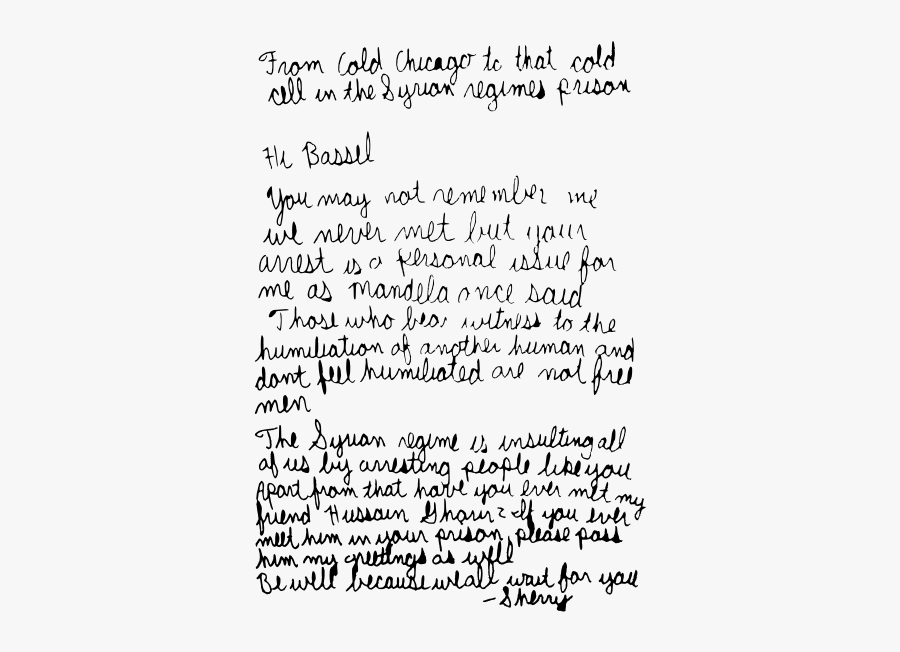 From Cold Chicago to that cold
cell in the Syrian regimes prison
Hi Bassel
You may not remember me
we never met but your
arrest is a personal issue for
me as Mandela once said
Those who bear witness to the
humiliation of another human and
dont feel humiliated are not free
men
The Syrian regime is insulting all
of us by arresting people like you
Apart from that have you ever met my
friend Hussain Gharir? If you ever
meet him in your prison, please pass
him my greetings as well
Be well because we all wait for you
- Sherry